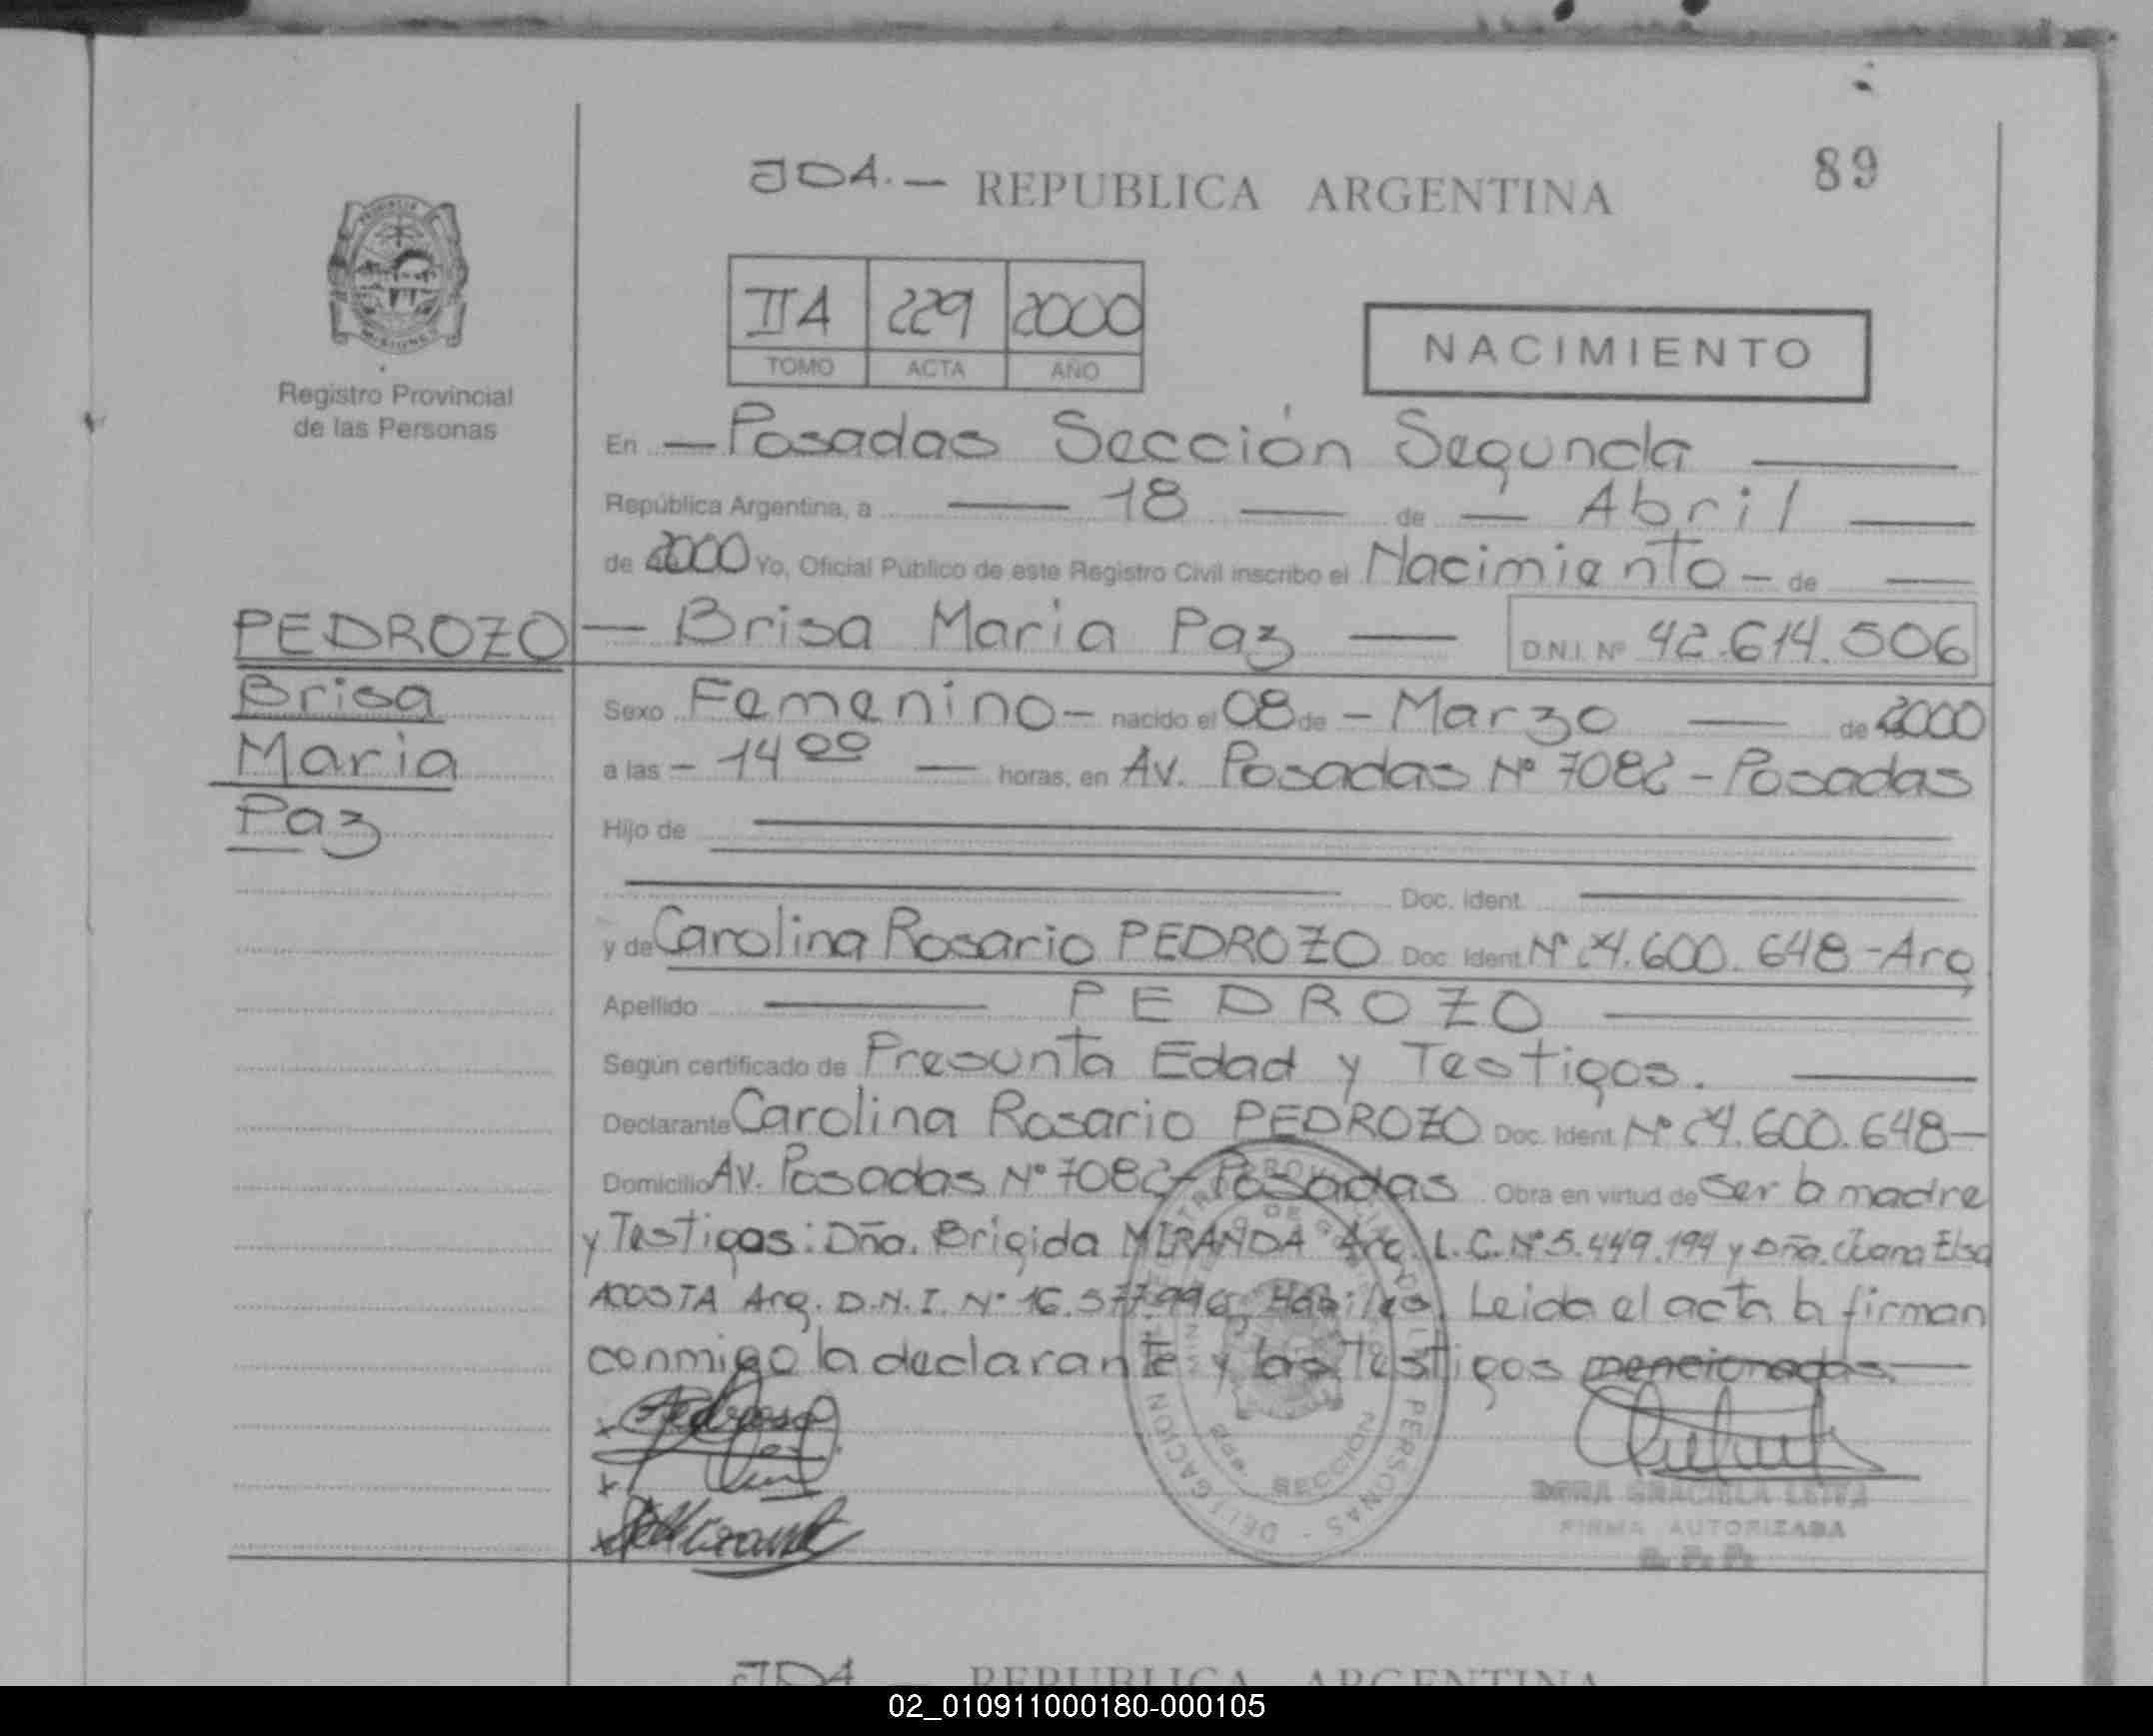 89
JDA.— REPUBLICA ARGENTINA
IIA 229 2000
TOMO ACTA AÑO
NACIMIENTO
Registro Provincial
de las Personas
En — Posadas Sección Segunda —
República Argentina, a — 18 — de — Abril —
de 2000 Yo, Oficial Público de este Registro Civil inscribo el Nacimiento - de —
PEDROZO — Brisa Maria Paz — D.N.I. Nº 42.614.506
Brisa
Maria
Paz
Sexo Femenino - nacido el 08 de - Marzo — de 2000
a las - 14 00 — horas, en Av. Posadas Nº 7082 - Posadas
Hijo de
Doc. Ident.
y de Carolina Rosario PEDROZO Doc. Ident. Nº 24.600.648 - Arg
Apellido — PEDROZO —
Según certificado de Presunta Edad y Testigos. —
Declarante Carolina Rosario PEDROZO Doc. Ident. Nº 24.600.648 —
Domicilio Av. Posadas Nº 7082 - Posadas Obra en virtud de ser la madre
y Testigos: Dña. Brigida MIRANDA Arg. L.C. Nº 5.449.194 y Dña. Juana Elsa
ACOSTA Arg. D.N.I. Nº 16.577.996, Hábiles. Leida el acta la firman
conmigo la declarante y los Testigos mencionados —
DELEGACION
2da. SECCION
PERSONAS
DORA GRACIELA LEIVA
FIRMA AUTORIZADA
R. P. P.
JDA — REPUBLICA ARGENTINA
02_010911000180-000105